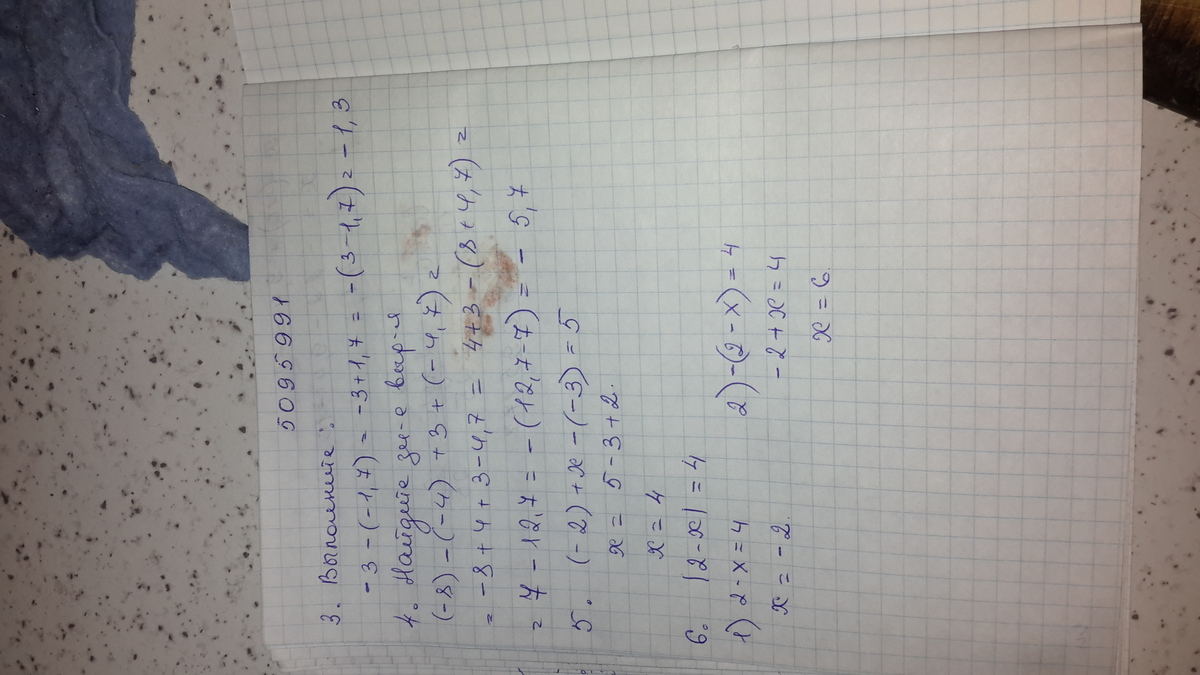 5095991
3. Выполните:
-3-(-1,7) = -3+1,7 = -(3-1,7) = -1,3
4. Найдите зн-е выр-я
(-8)-(-4)+3+(-4,7) =
= -8+4+3-4,7 = 4+3-(8+4,7) =
= 7-12,7 = -(12,7-7) = -5,7
5. (-2)+x-(-3)=5
x = 5-3+2.
x=4
6. |2-x|=4
1) 2-x=4 2) -(2-x)=4
x=-2. -2+x=4
x=6.